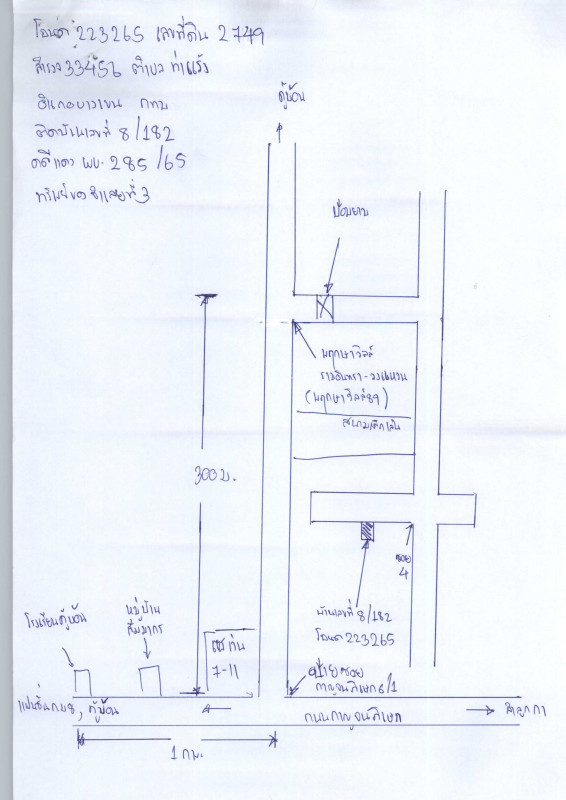 โฉนด 223265 เลขที่ดิน 2749
สำรวจ 33456 ตำบล ท่าแร้ง
อำเภอบางเขน กทม
ติดบ้านเลขที่ 8/182
คดีแดง ผบ. 285/65
ทรัพย์ของจำเลยที่ 3
คู้บอน
ป้อมยาม
พฤกษาวิลล์
รามอินทรา-วงแหวน
(พฤกษาวิลล์89)
สนามเด็กเล่น
300 ม.
ซอย
4
บ้านเลขที่ 8/182
โฉนด 223265
โรงเรียนคู้บอน
หมู่บ้าน
สัมมากร
เซเว่น
7-11
ป้ายซอย
กาญจนาภิเษก 6/1
แฟชั่น, คู้บอน
ถนนกาญจนาภิเษก
ลำลูกกา
1 กม.